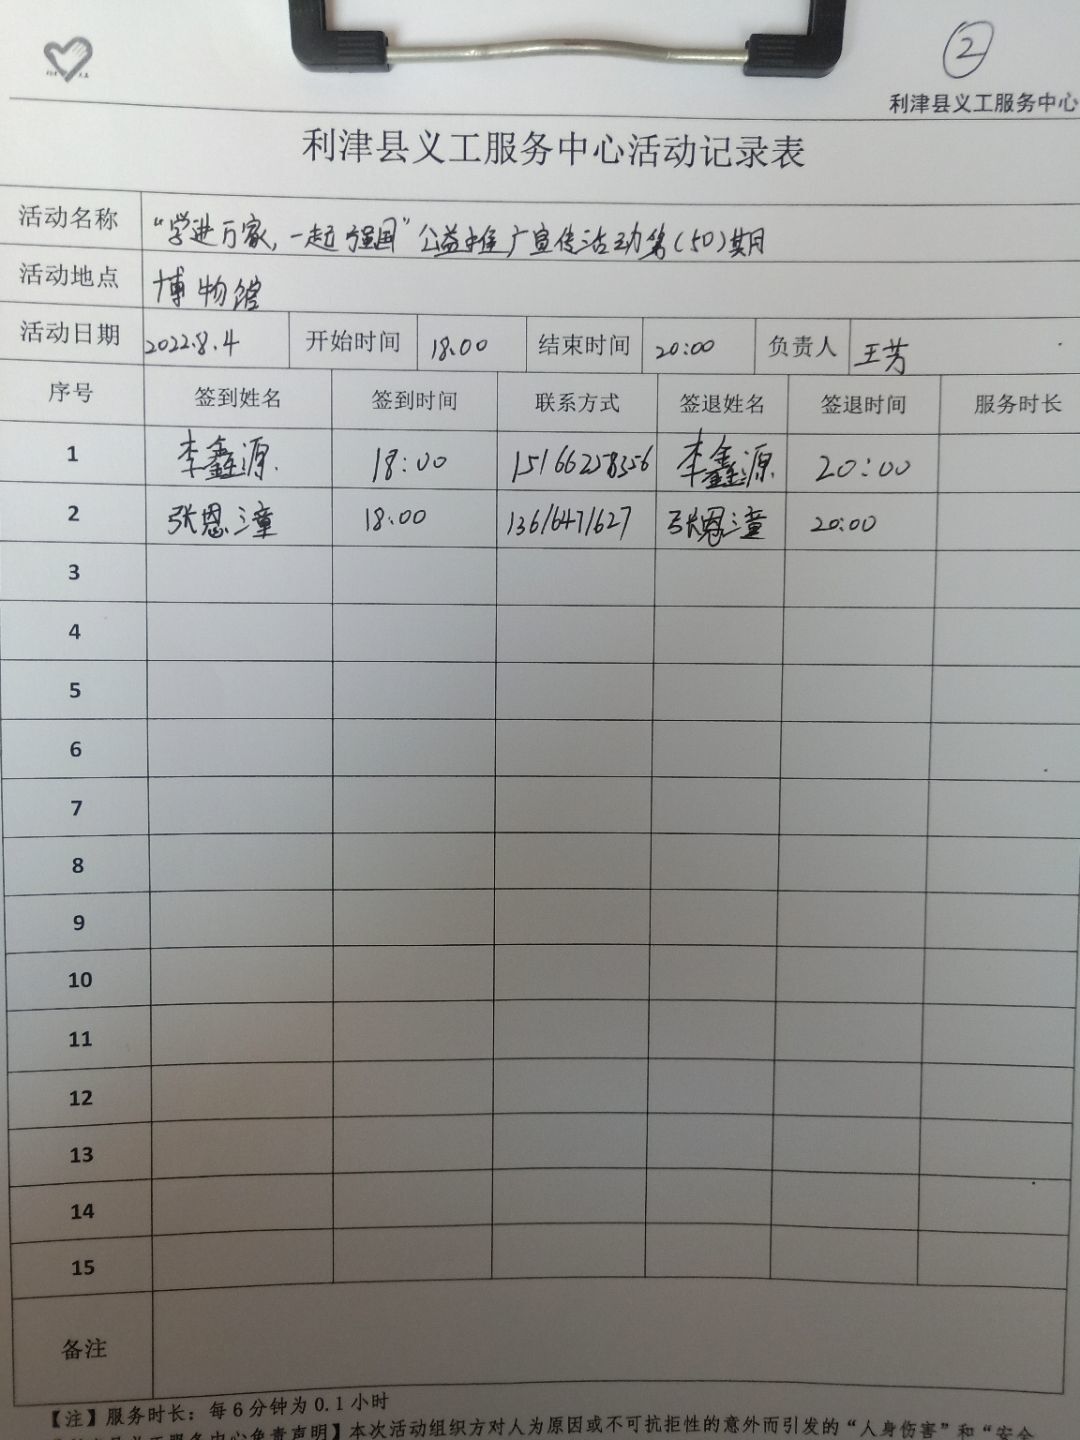 ②
利津县义工服务中心
利津县义工服务中心活动记录表
活动名称 “学进万家，一起强国”公益推广宣传活动第(50)期
活动地点 博物馆
活动日期 2022.8.4 开始时间 18:00 结束时间 20:00 负责人 王芳
序号 签到姓名 签到时间 联系方式 签退姓名 签退时间 服务时长
1 李鑫源 18:00 15166258356 李鑫源 20:00
2 张恩潼 18:00 13616471627 张恩潼 20:00
3
4
5
6
7
8
9
10
11
12
13
14
15
备注
【注】服务时长：每6分钟为0.1小时
义工服务中心免责声明】本次活动组织方对人为原因或不可抗拒性的意外而引发的“人身伤害”和“安全